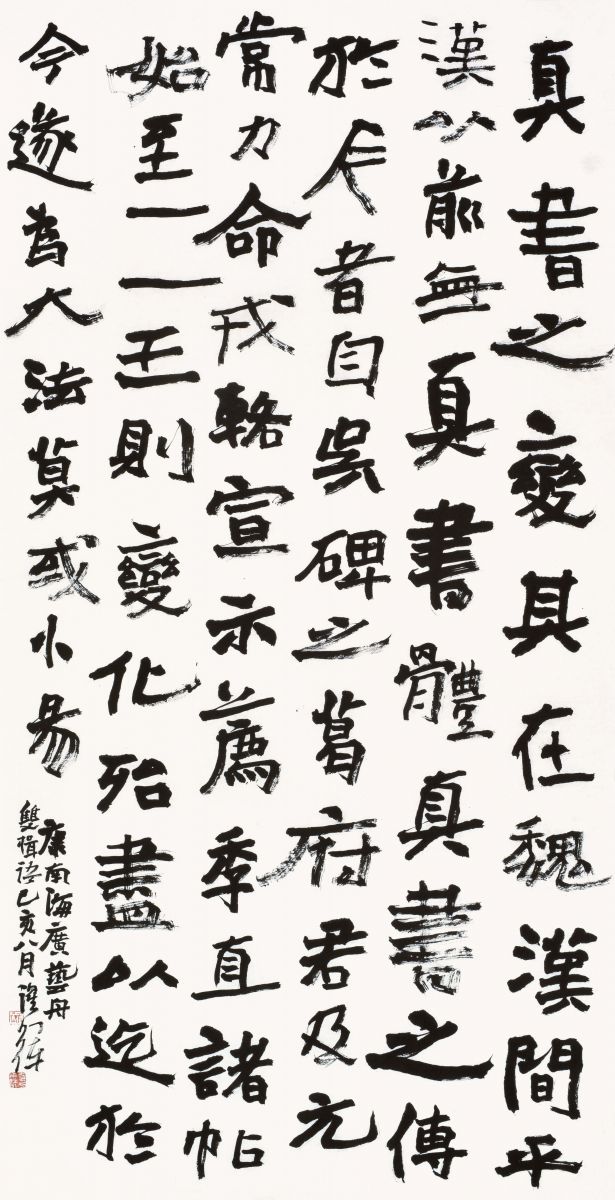 真書之變其在魏漢間乎
漢以前無真書體真書之傳
於今者自吳碑之葛府君及元
常力命戎輅宣示薦季直諸帖
始至二王則變化殆盡以迄於
今遂為大法莫或小易
康南海廣藝舟
雙楫語己亥八月